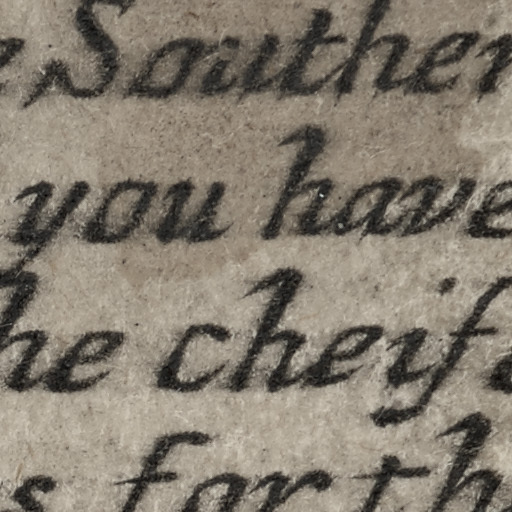 e Souther
you have
he cheif
s for th